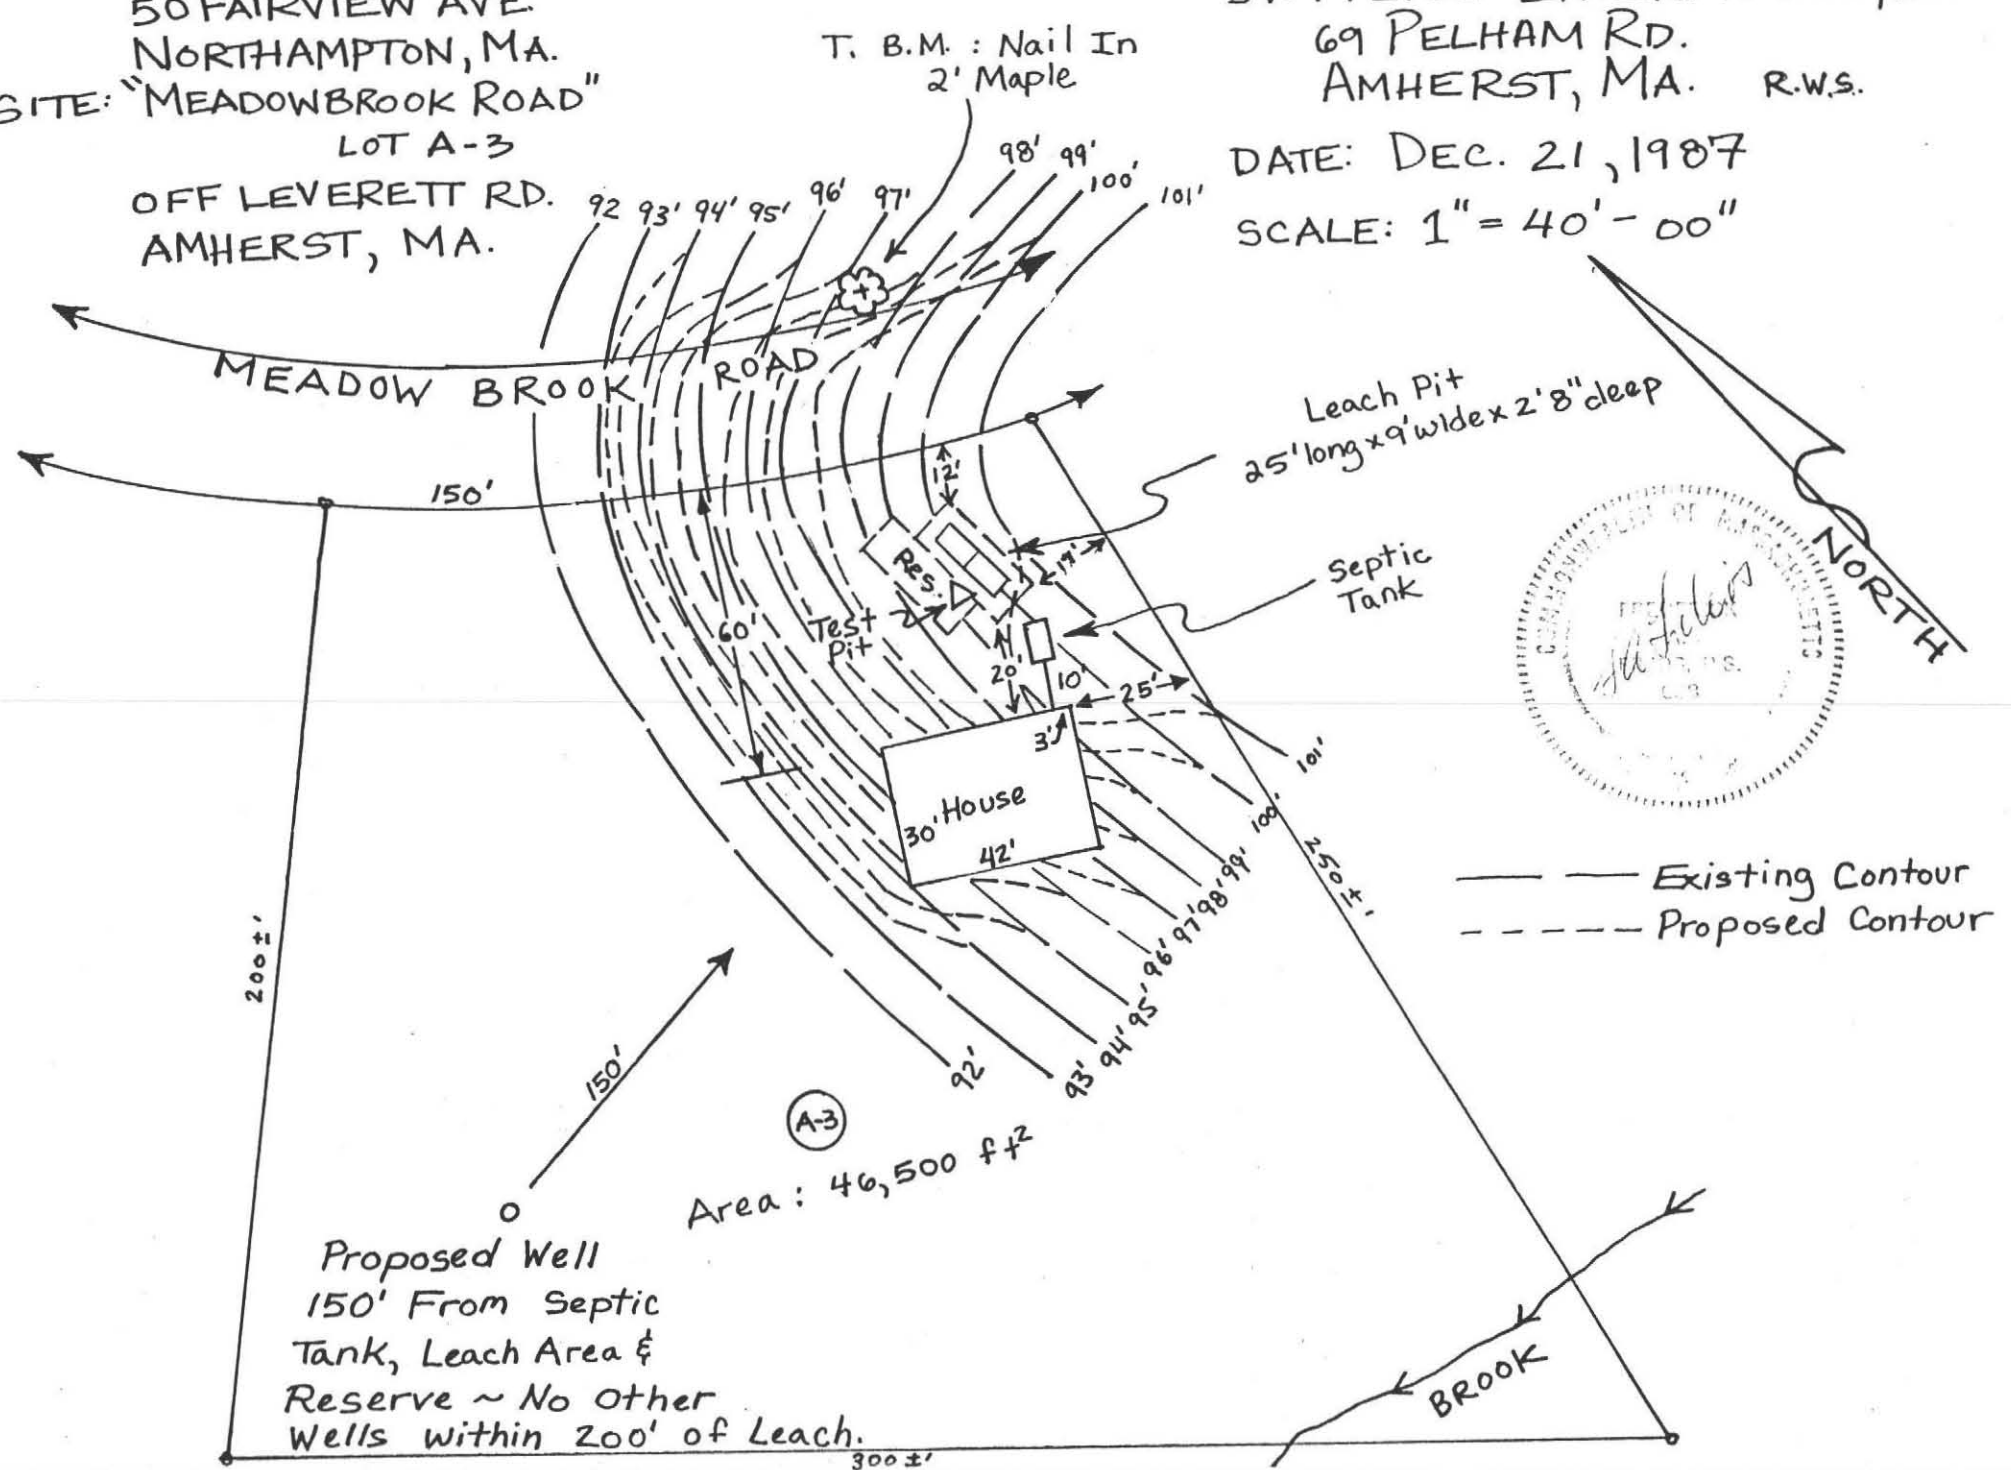 50 FAIRVIEW AVE.
NORTHAMPTON, MA.
SITE: "MEADOWBROOK ROAD"
LOT A-3
OFF LEVERETT RD.
AMHERST, MA.
T. B.M. : Nail In
2' Maple
69 PELHAM RD.
AMHERST, MA. R.W.S.
DATE: DEC. 21, 1987
SCALE: 1" = 40' - 00"
92 93' 94' 95' 96' 97' 98' 99' 100' 101'
MEADOW BROOK ROAD
150'
12'
Leach Pit
25' long x 9' wide x 2'8" deep
Septic
Tank
NORTH
Res.
Test
Pit
60'
20'
10'
25'
3'
House
30'
42'
101'
100'
99'
98'
97'
96'
95'
94'
93'
92'
250±'
200±'
Existing Contour
Proposed Contour
150'
A-3
Area : 46,500 ft²
Proposed Well
150' From Septic
Tank, Leach Area &
Reserve ~ No Other
Wells within 200' of Leach.
BROOK
300±'